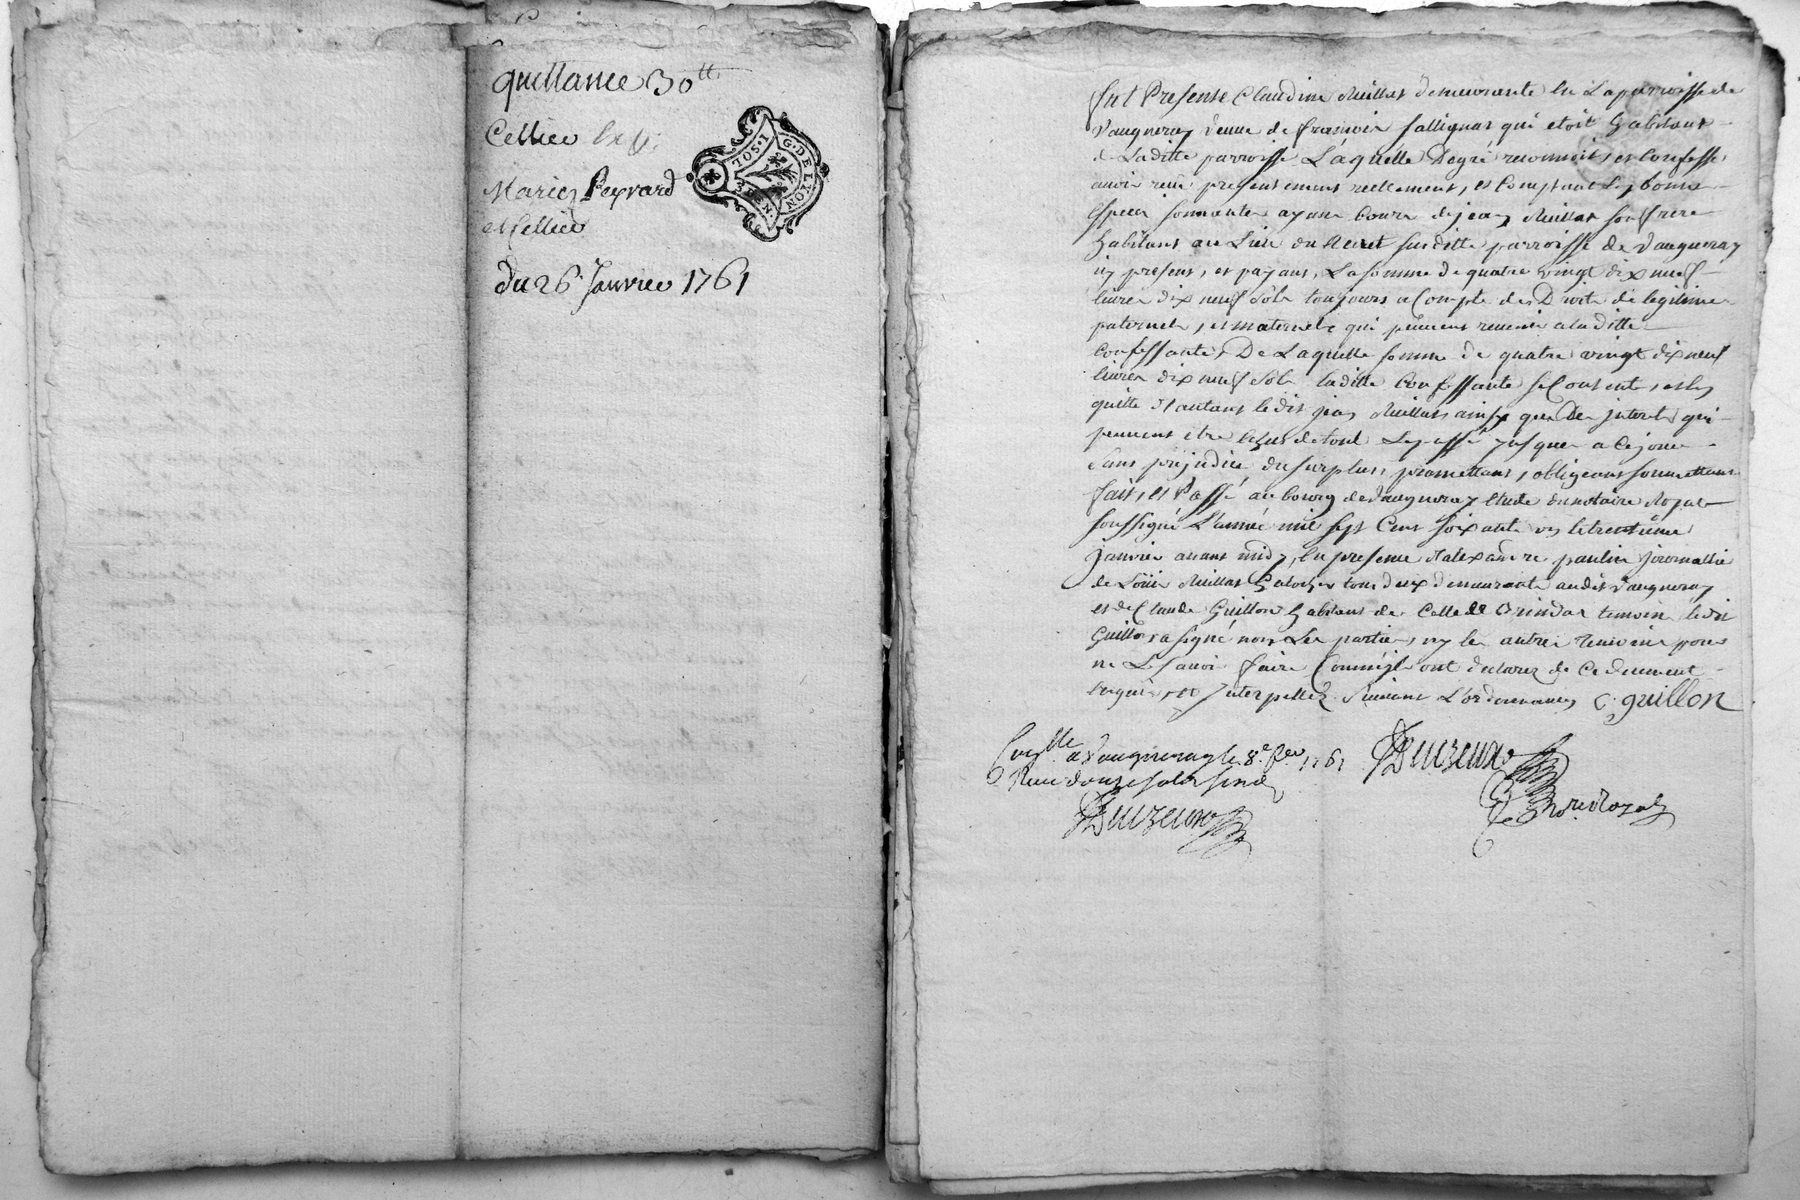 quittance 30tt
Cellier
Mariez Peyrard
et Cellier
du 26e Janvier 1761
G. DE LYON
TOS. I
3 DEN.
fut Presente Claudine Muillat demeurante en La parroisse de
Vaugneray veuve de francois sallignat qui etoit habitant
de Laditte parroisse Laquelle Degré reconnoit, et Confesse
avoir reçu presentement reellement, et Comptant en bonne
espece sonnante ayant Cours de jean Muillat son frere
habitant au Lieu du Recret susditte parroisse de Vaugneray
icy present, et payant, La somme de quatre vingt dix neuf
livres dix neuf sols toujours a Compte des Droits de legitime
paternels, et maternels qui peuvent revenir a laditte
Confessante, De Laquelle somme de quatre vingt dix neuf
livres dix neuf sols laditte Confessante se Contente, et en
quitte d'autant ledit jean Muillat ainsy que De interets qui
peuvent etre echus de tout Le passé jusques a Ce jour
Sans prejudice du surplus, promettant, obligeant soumettant
fait, et Passé au bourg de Vaugneray etude du notaire Royal
soussigné L'année mil sept Cent soixante un le trentieme
janvier avant midy, en presence d'alexandre paulin journallier
de Loüis Muillat sabotier tous deux demeurants audit Vaugneray
et de Claude Guillon habitant de Celle de Brindas temoins ledit
Guillon a signé non Les parties, ny les autres temoins pour
ne Le savoir faire Comm'ils ont declarez de Ce duement
enquis, et Interpellez Suivant L'ordonnance, C. guillon
Conlle a Vaugneray le 8e fer 1761
Reçu douze sols six d
nore Royal